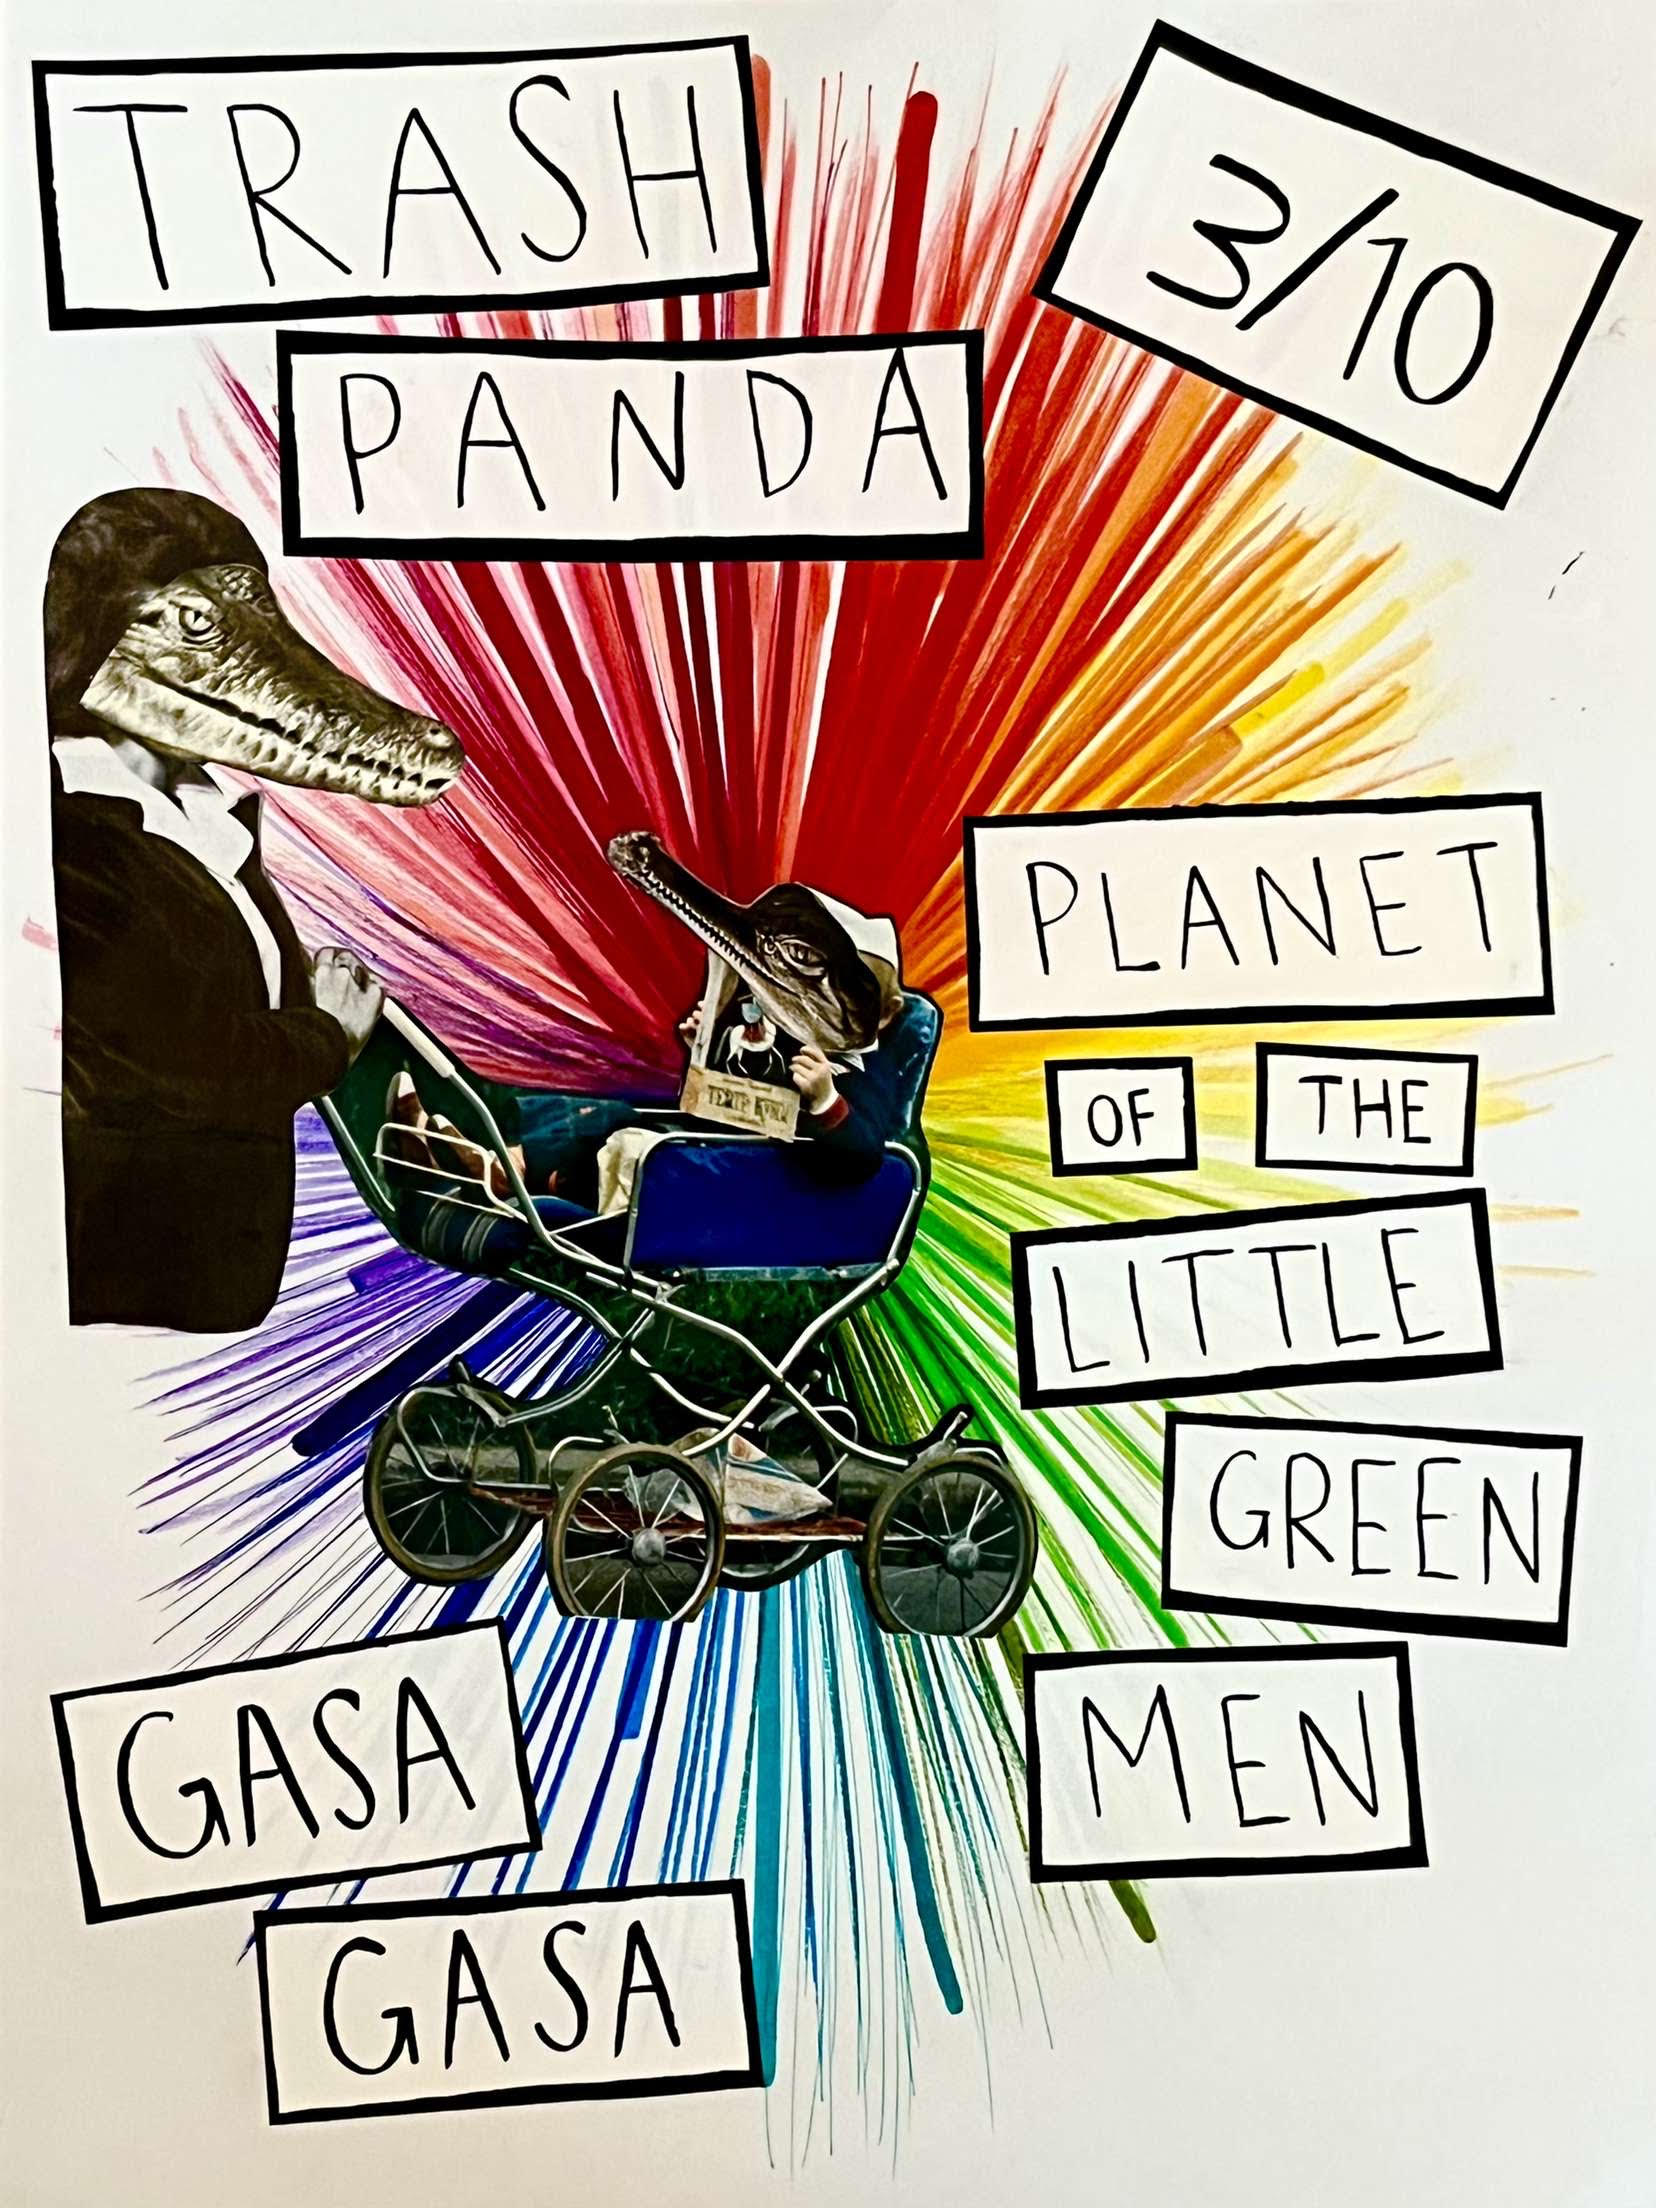 TRASH
3/10
PANDA
PLANET
OF THE
LITTLE
GREEN
MEN
GASA
GASA